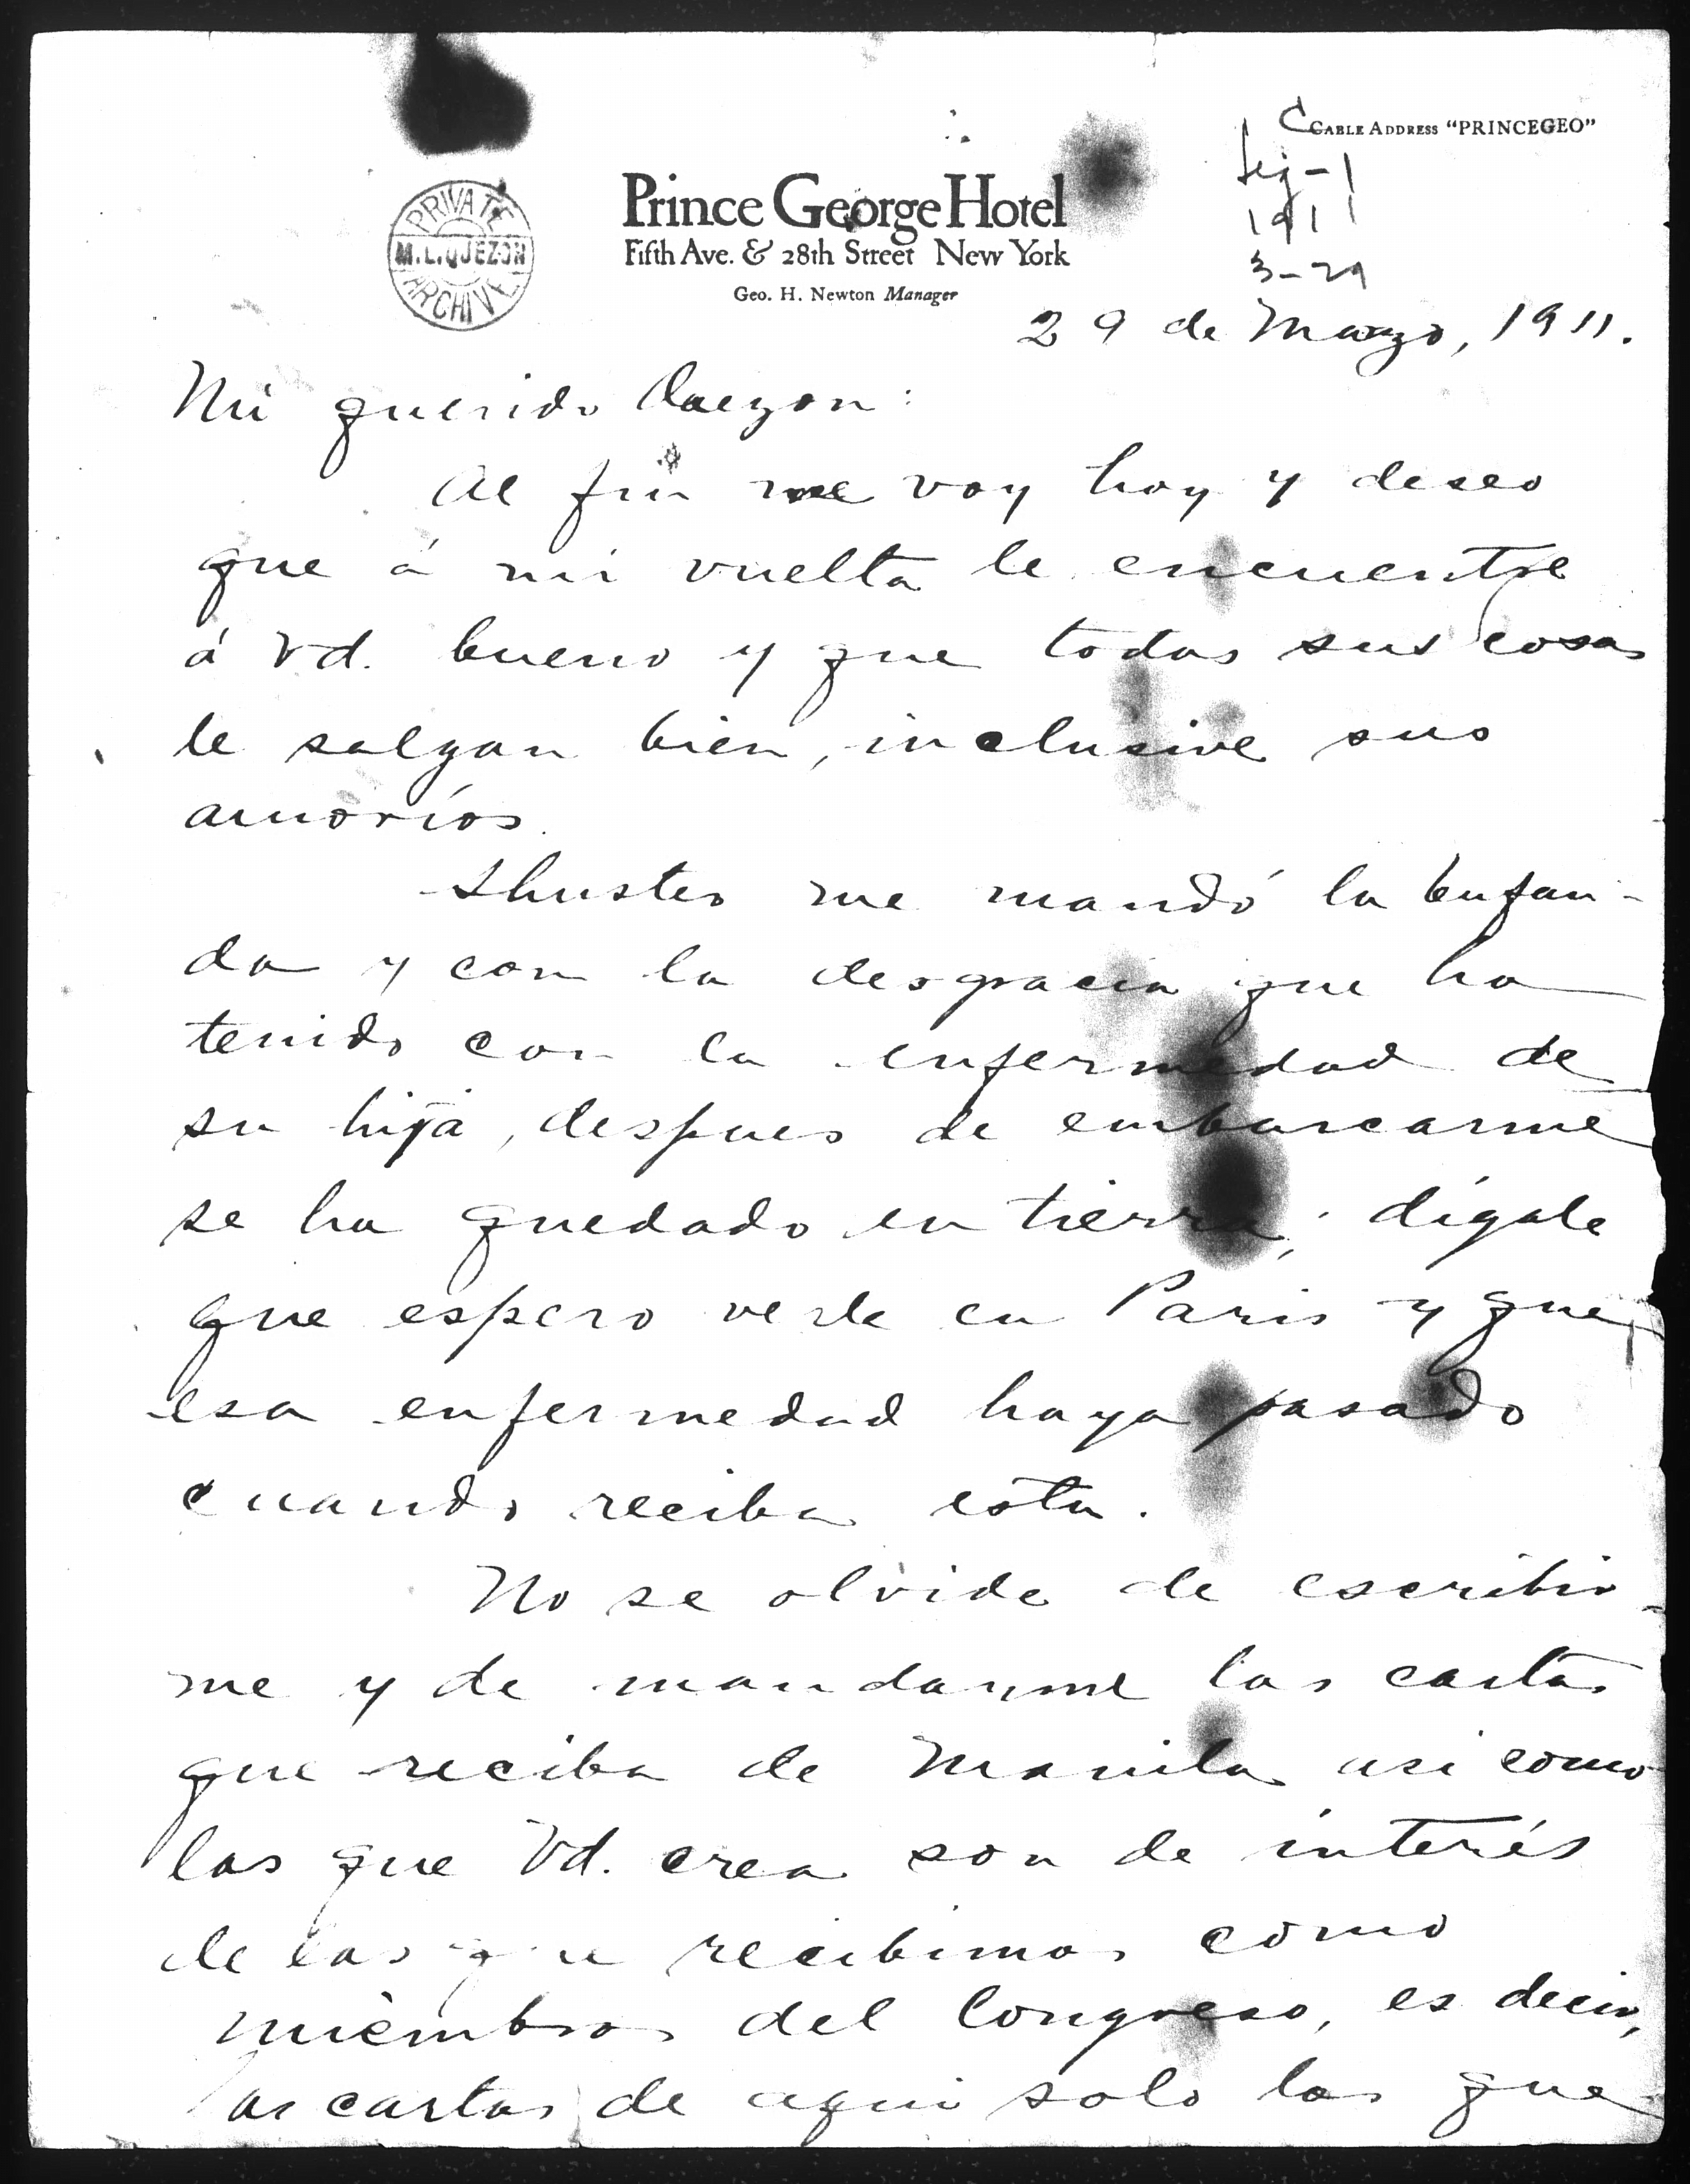 CABLE ADDRESS "PRINCEGEO"
C
Leg-1
1911
3-29
Prince George Hotel
Fifth Ave. & 28th Street New York
Geo. H. Newton Manager
PRIVATE
M.L.QUEZON
ARCHIVE
29 de Marzo, 1911.
Mi querido Quezon:
Al fin me voy hoy y deseo
que á mi vuelta le encuentre
á Vd. bueno y que todas sus cosas
le salgan bien, inclusive sus
amoríos.
Shuster me mandó la bufan-
da y con la desgracia que ha
tenido con la enfermedad de
su hija, despues de embarcarme
se ha quedado en tierra; dígale
que espero verle en Paris y que
esa enfermedad haya pasado
cuando reciba esta.
No se olvide de escribir-
me y de mandarme las cartas
que reciba de Manila asi como
las que Vd. crea son de interés
de las que recibimos como
miembros del Congreso, es decir,
as cartas de aqui solo las que